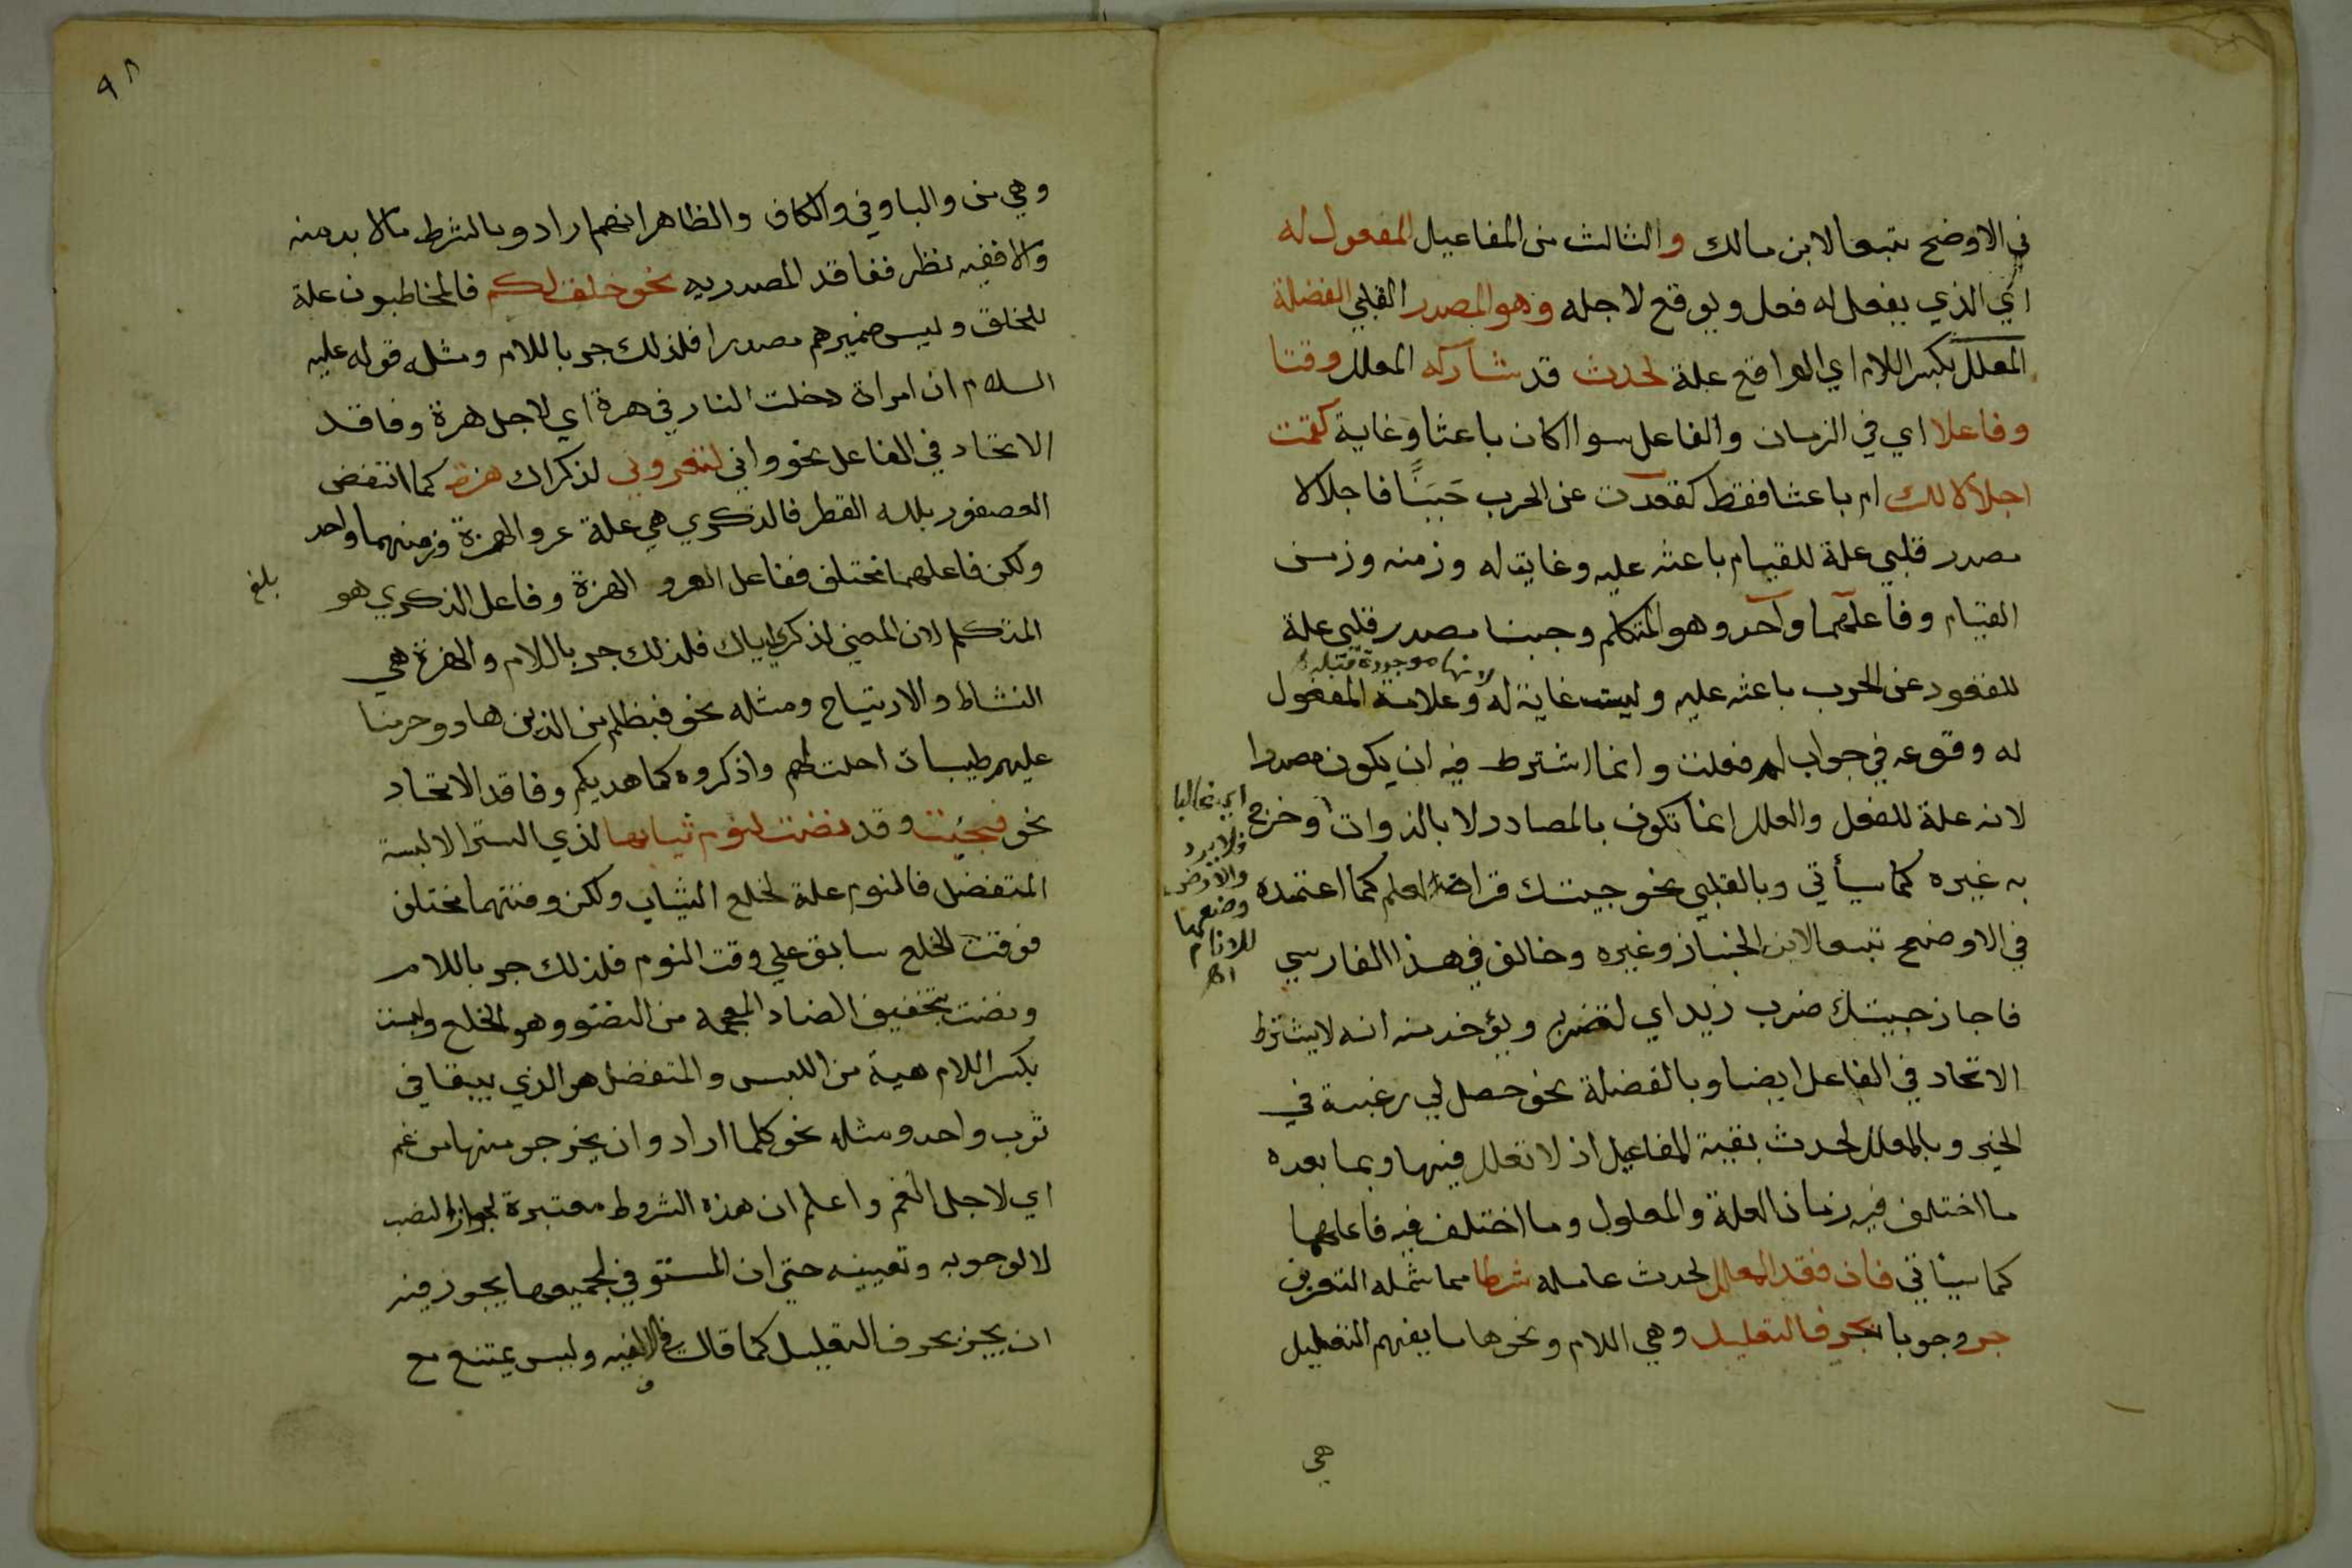 في الاوضح تبعا لابن مالك والثالث من المفاعيل المفعول له
اي الذي يفعل له فعل ويوقع لاجله وهو المصدر القلبي الفضلة
المعلل بكسر اللام اي الواقع علة لحدث قد شاركه المعلل وقتا
وفاعلا اي في الزمان والفاعل سوا اكان باعثا وغاية كقمت
اجلالا لك ام باعثا فقط كقعدت عن الحرب جبنًا فاجلالا
مصدر قلبي علة للقيام باعثه عليه وغاية له وزمنه وزمن
القيام وفاعلهما واحد وهو المتكلم وجبنا مصدر قلبي علة
لانها موجودة قبله
للقعود عن الحرب باعثه عليه وليست غاية له وعلامة المفعول
له وقوعه في جواب لم فعلت وانما اشترط فيه ان يكون مصدرا
لانه علة للفعل والعلل انما تكون بالمصادر لا بالذوات وخرج
اي غالبا
فلا يرد
والارض
وضعها
للانام
اه
به غيره كما سيأتي وبالقلبي نحو جيتك قراة العلم كما اعتمده
في الاوضح تبعا لابن الخباز وغيره وخالف في هذا الفارسي
فاجاز جيتك ضرب زيد اي لتضربه ويؤخذ منه انه لا يشترط
الاتحاد في الفاعل ايضا وبالفضلة نحو حصل لي رغبة في
الخير وبالمعلل لحدث بقية المفاعيل اذ لا تعلل فيها وبما بعده
ما اختلف فيه زمان العلة والمعلول وما اختلف فيه فاعلهما
كما سيأتي فان فقد المعلل لحدث عامله شرطا مما شمله التعريف
جر وجوبا بحرف التعليل وهي اللام ونحوها ما يفهم التعليل
هي
٩٨
وهي من والبا وفي والكاف والظاهر انهم ارادوا بالشرط مالا بد منه
والا ففيه نظر ففاقد المصدريه نحو خلق لكم فالمخاطبون علة
للخلق وليس ضميرهم مصدرا فلذلك جر باللام ومثله قوله عليه
السلام ان امراة دخلت النار في هرة اي لاجل هرة وفاقد
الاتحاد في الفاعل نحو واني لتعروني لذكراك هزة كما انتفض
العصفور بلله القطر فالذكري هي علة عرو الهزة وزمنهما واحد
ولكن فاعلهما مختلف ففاعل العرو الهزة وفاعل الذكري هو
بلغ
المتكلم لان المعني لذكري اياك فلذلك جر باللام والهزة هي
النشاط والارتياح ومثله نحو فبظلم من الذين هادوا حرمنا
عليهم طيبات احلت لهم واذكروه كما هديكم وفاقد الاتحاد
نحو فجئت وقد نضت لنوم ثيابها لذي الستر الا لبسة
المتفضل فالنوم علة لخلع الثياب ولكن وقتهما مختلف
فوقت الخلع سابق علي وقت النوم فلذلك جر باللام
ونضت بتخفيف الضاد المعجمة من النضو وهو الخلع ولبسة
بكسر اللام هية من اللبس والمتفضل هو الذي يبقا في
ثوب واحد ومثله نحو كلما ارادوا ان يخرجوا منها من غم
اي لاجل الغم واعلم ان هذه الشروط معتبرة لجواز النصب
لا لوجوبه وتعيينه حتي ان المستوفي لجميعها يجوز فيه
ان يجر بحرف التعليل كما قال في الالفيه وليس يمتنع مع